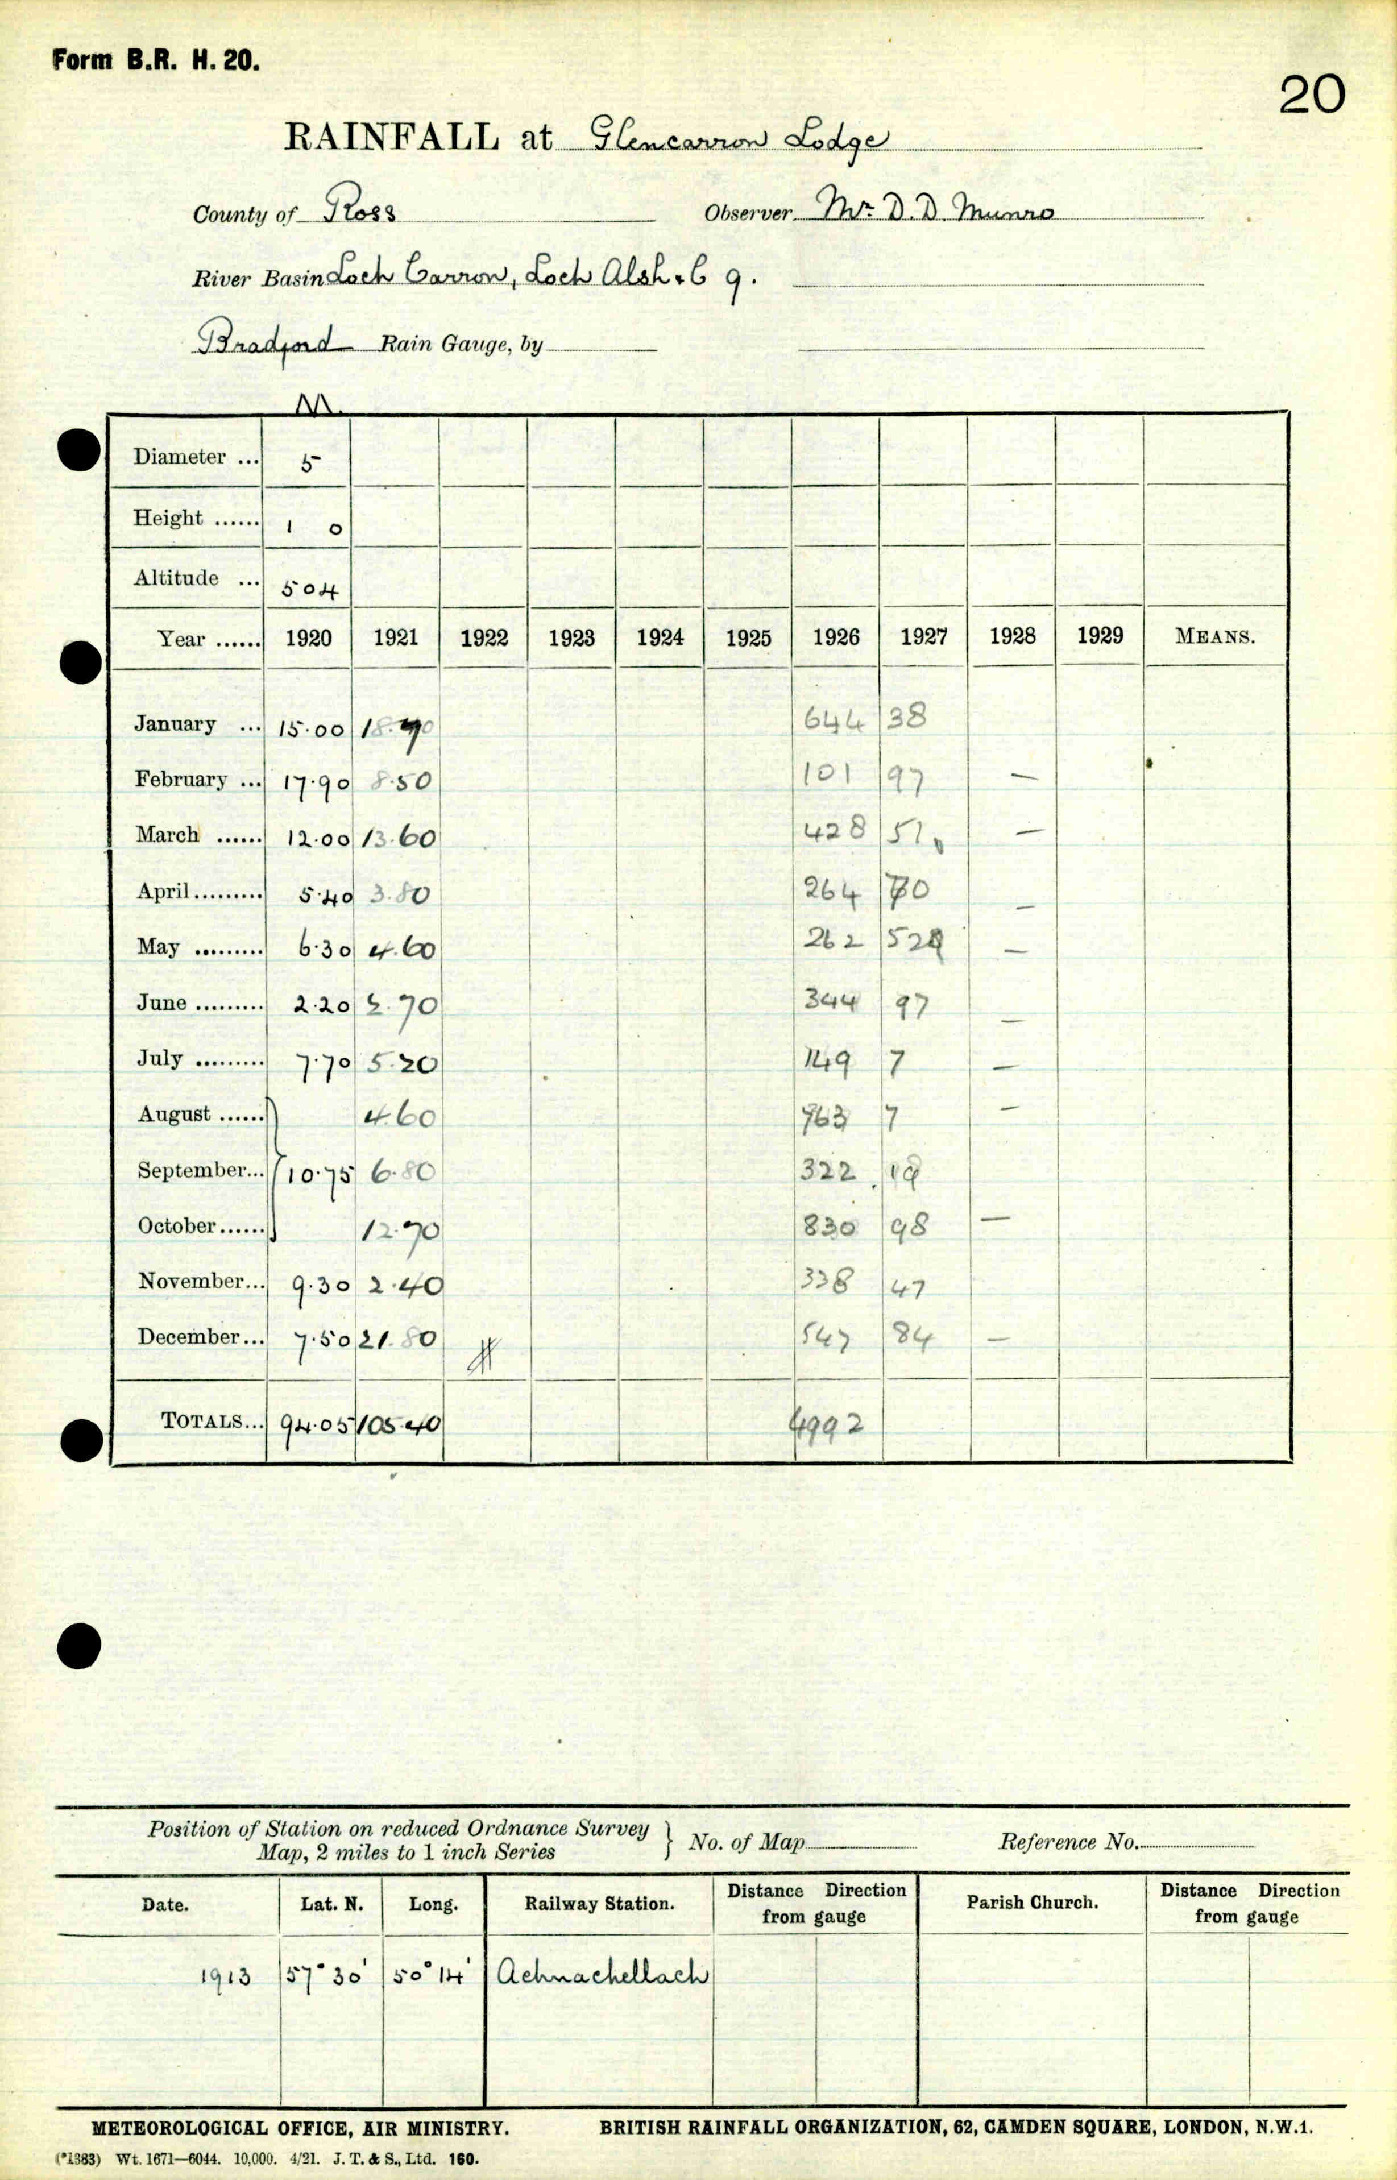 Form B.R. H. 20.
20
RAINFALL at Glencarron Lodge
County of Ross Observer Mr. D. D. Munro
River Basin Loch Carron, Loch Alsh &c 9.
Bradford Rain Gauge, by
M.
Diameter ... 5
Height ...... 1 0
Altitude ... 504
Year ...... 1920 1921 1922 1923 1924 1925 1926 1927 1928 1929 MEANS.
January ... 15.00 18.70 644 38
February ... 17.90 8.50 101 97 —
March ...... 12.00 13.60 428 51 —
April ......... 5.40 3.80 264 70 —
May ......... 6.30 4.60 262 —
June ......... 2.20 2.70 344 97 —
July ......... 7.70 5.20 149 7 —
August ...... 4.60 963 7 —
September... 10.75 6.80 322 19
October ...... 12.70 830 98 —
November... 9.30 2.40 338 47
December... 7.50 21.80 547 84 —
TOTALS... 94.05 105.40 4992
Position of Station on reduced Ordnance Survey
Map, 2 miles to 1 inch Series } No. of Map Reference No.
Date. Lat. N. Long. Railway Station. Distance Direction from gauge Parish Church. Distance Direction from gauge
1913 57° 30' 50° 14' Achnachellach
METEOROLOGICAL OFFICE, AIR MINISTRY. BRITISH RAINFALL ORGANIZATION, 62, CAMDEN SQUARE, LONDON, N.W.1.
(*1383) Wt. 1671—6044. 10,000. 4/21. J. T. & S., Ltd. 160.